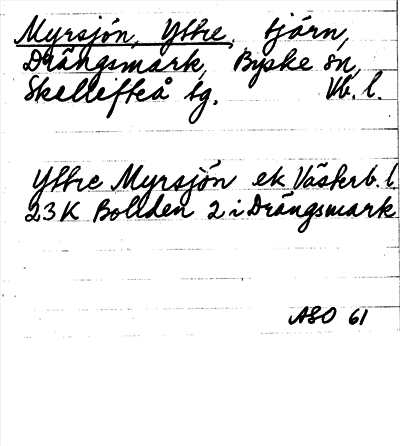 Myrsjön, Yttre, tjärn,
Drängsmark, Byske sn,
Skellefteå tg. Vb. l.
Yttre Myrsjön ek Västerb. l.
23K Boliden 2 i Drängsmark
ASO 61